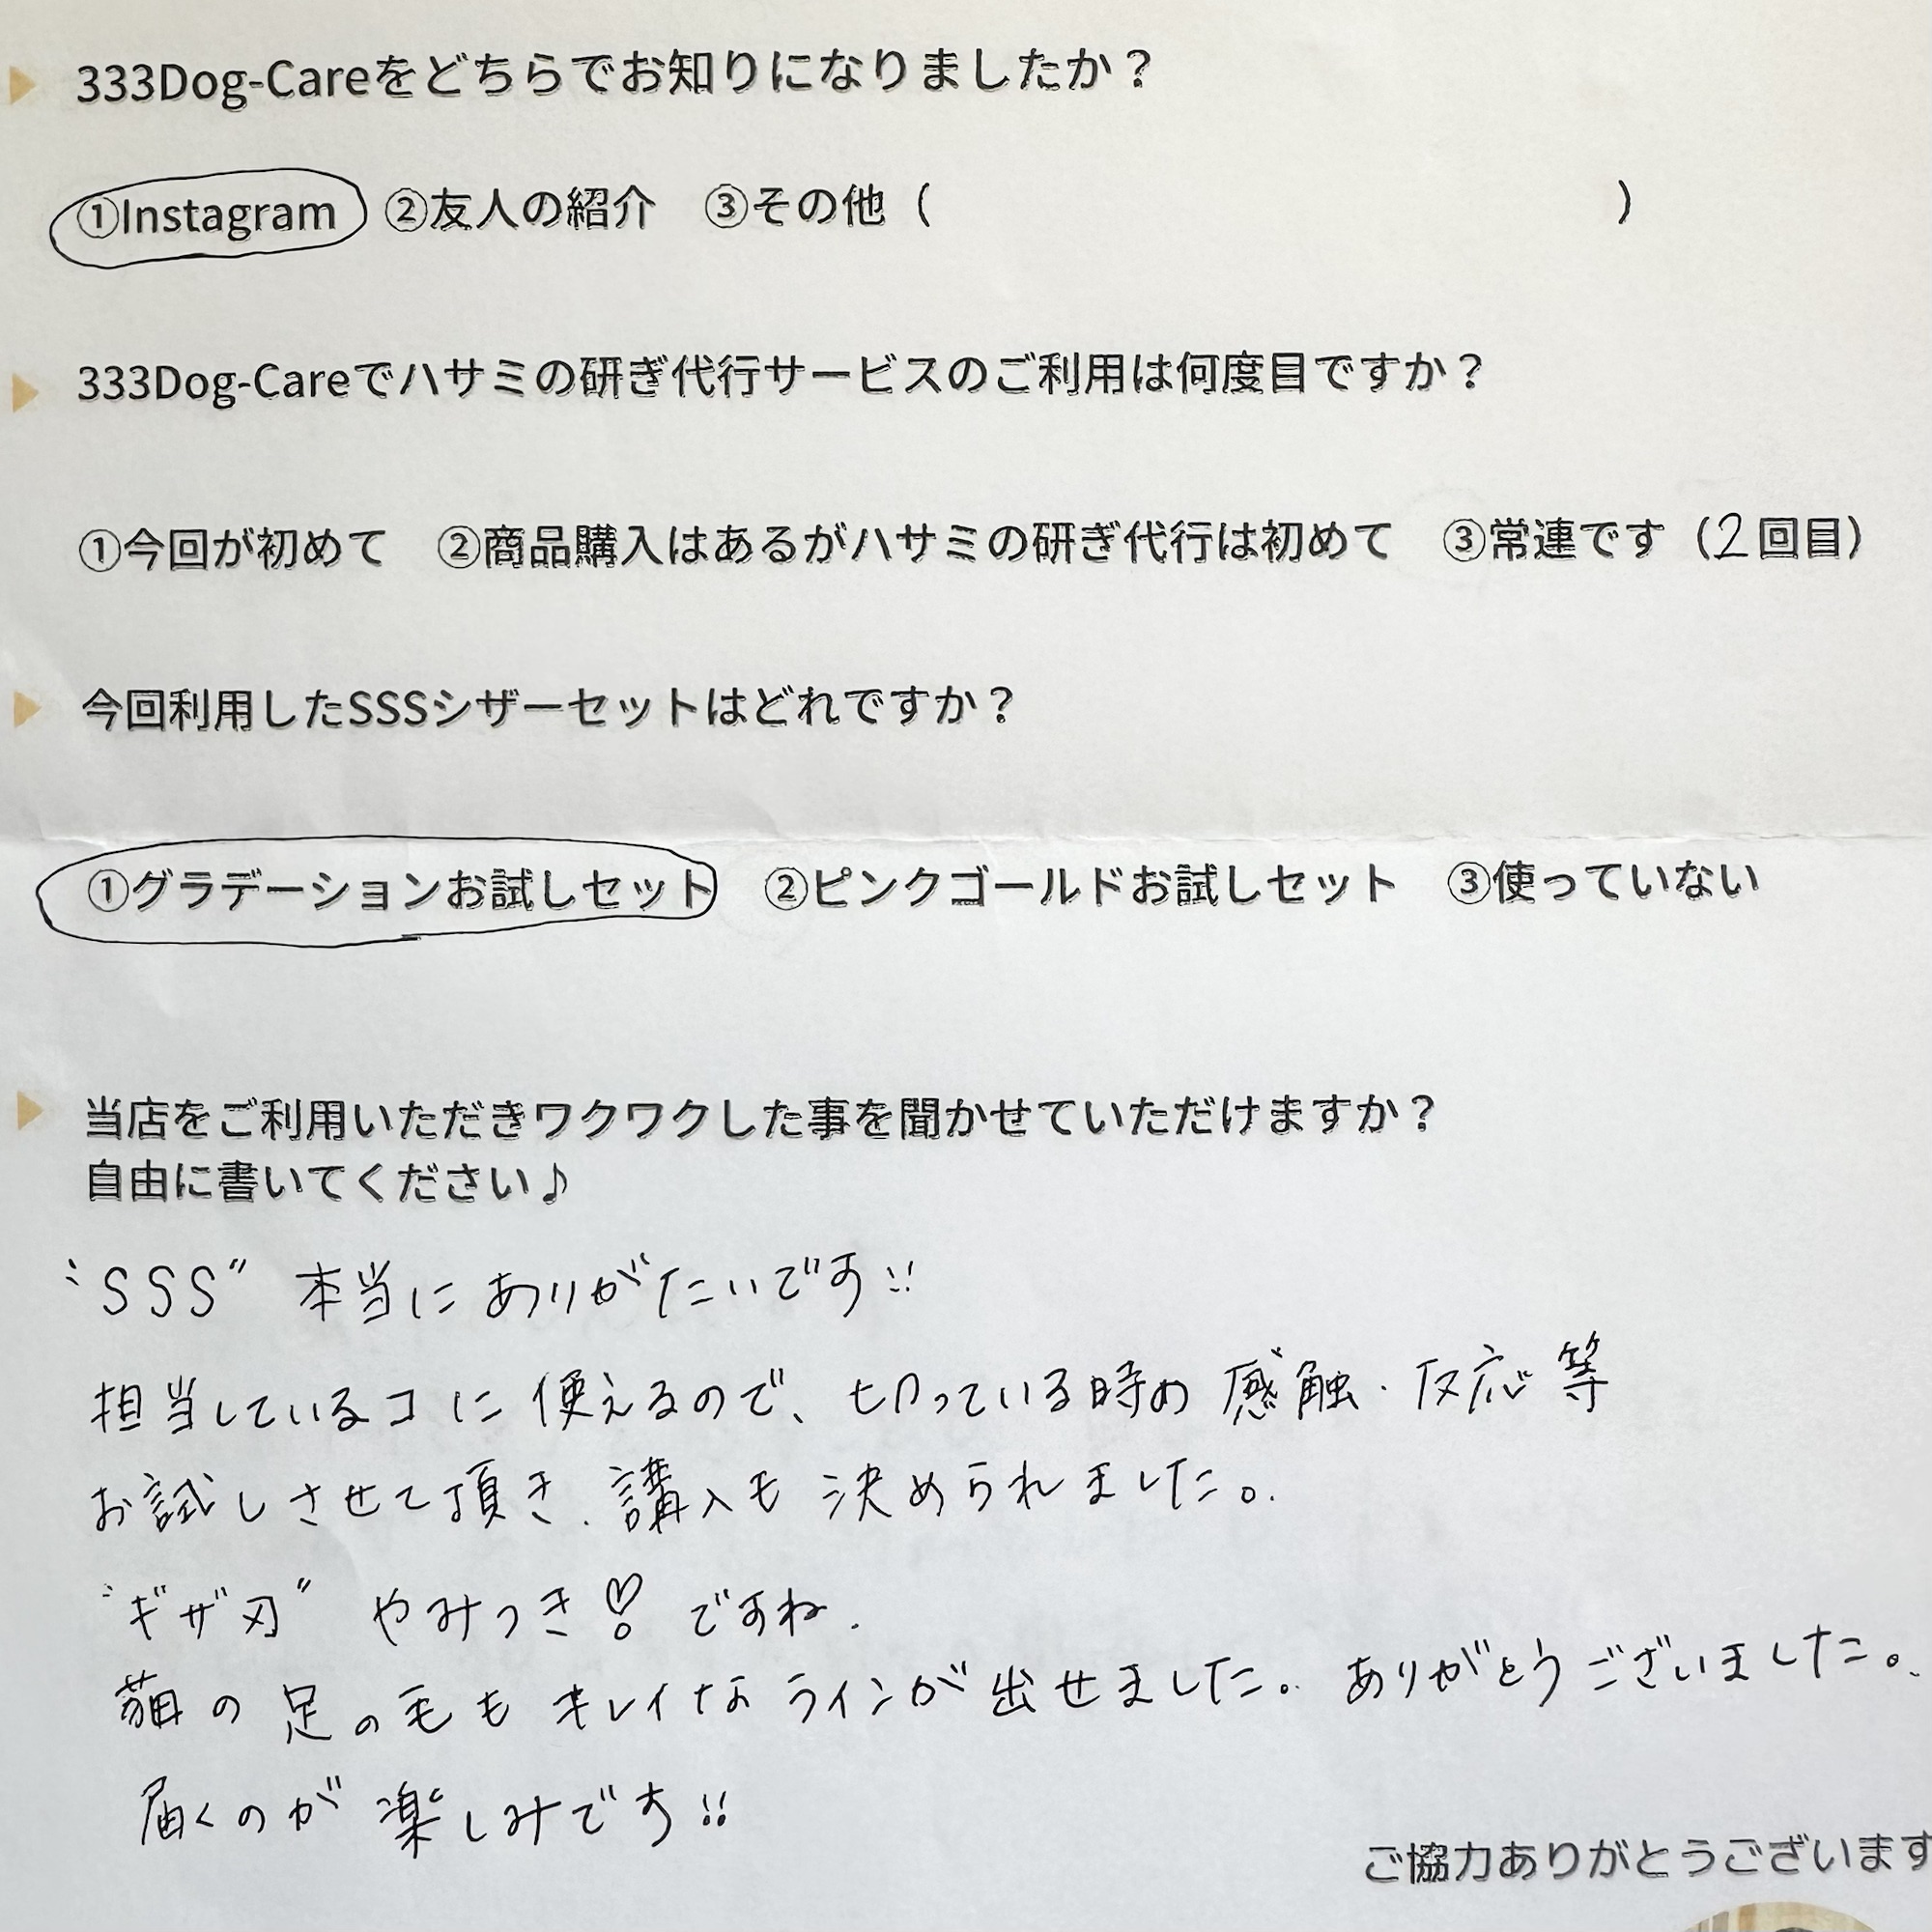 333Dog-Careをどちらでお知りになりましたか？
①Instagram ②友人の紹介 ③その他（ ）
333Dog-Careでハサミの研ぎ代行サービスのご利用は何度目ですか？
①今回が初めて ②商品購入はあるがハサミの研ぎ代行は初めて ③常連です（2回目）
今回利用したSSSシザーセットはどれですか？
①グラデーションお試しセット ②ピンクゴールドお試しセット ③使っていない
当店をご利用いただきワクワクした事を聞かせていただけますか？
自由に書いてください♪
〝SSS〟 本当に ありがたいです!!
担当しているコに使えるので、切っている時の感触・反応等
お試しさせて頂き、講入も決められました。
〝ギザ刃〟 やみつき♡ ですね.
猫の足の毛もキレイなラインが出せました。ありがとうございました。
届くのが楽しみです!!
ご協力ありがとうございます